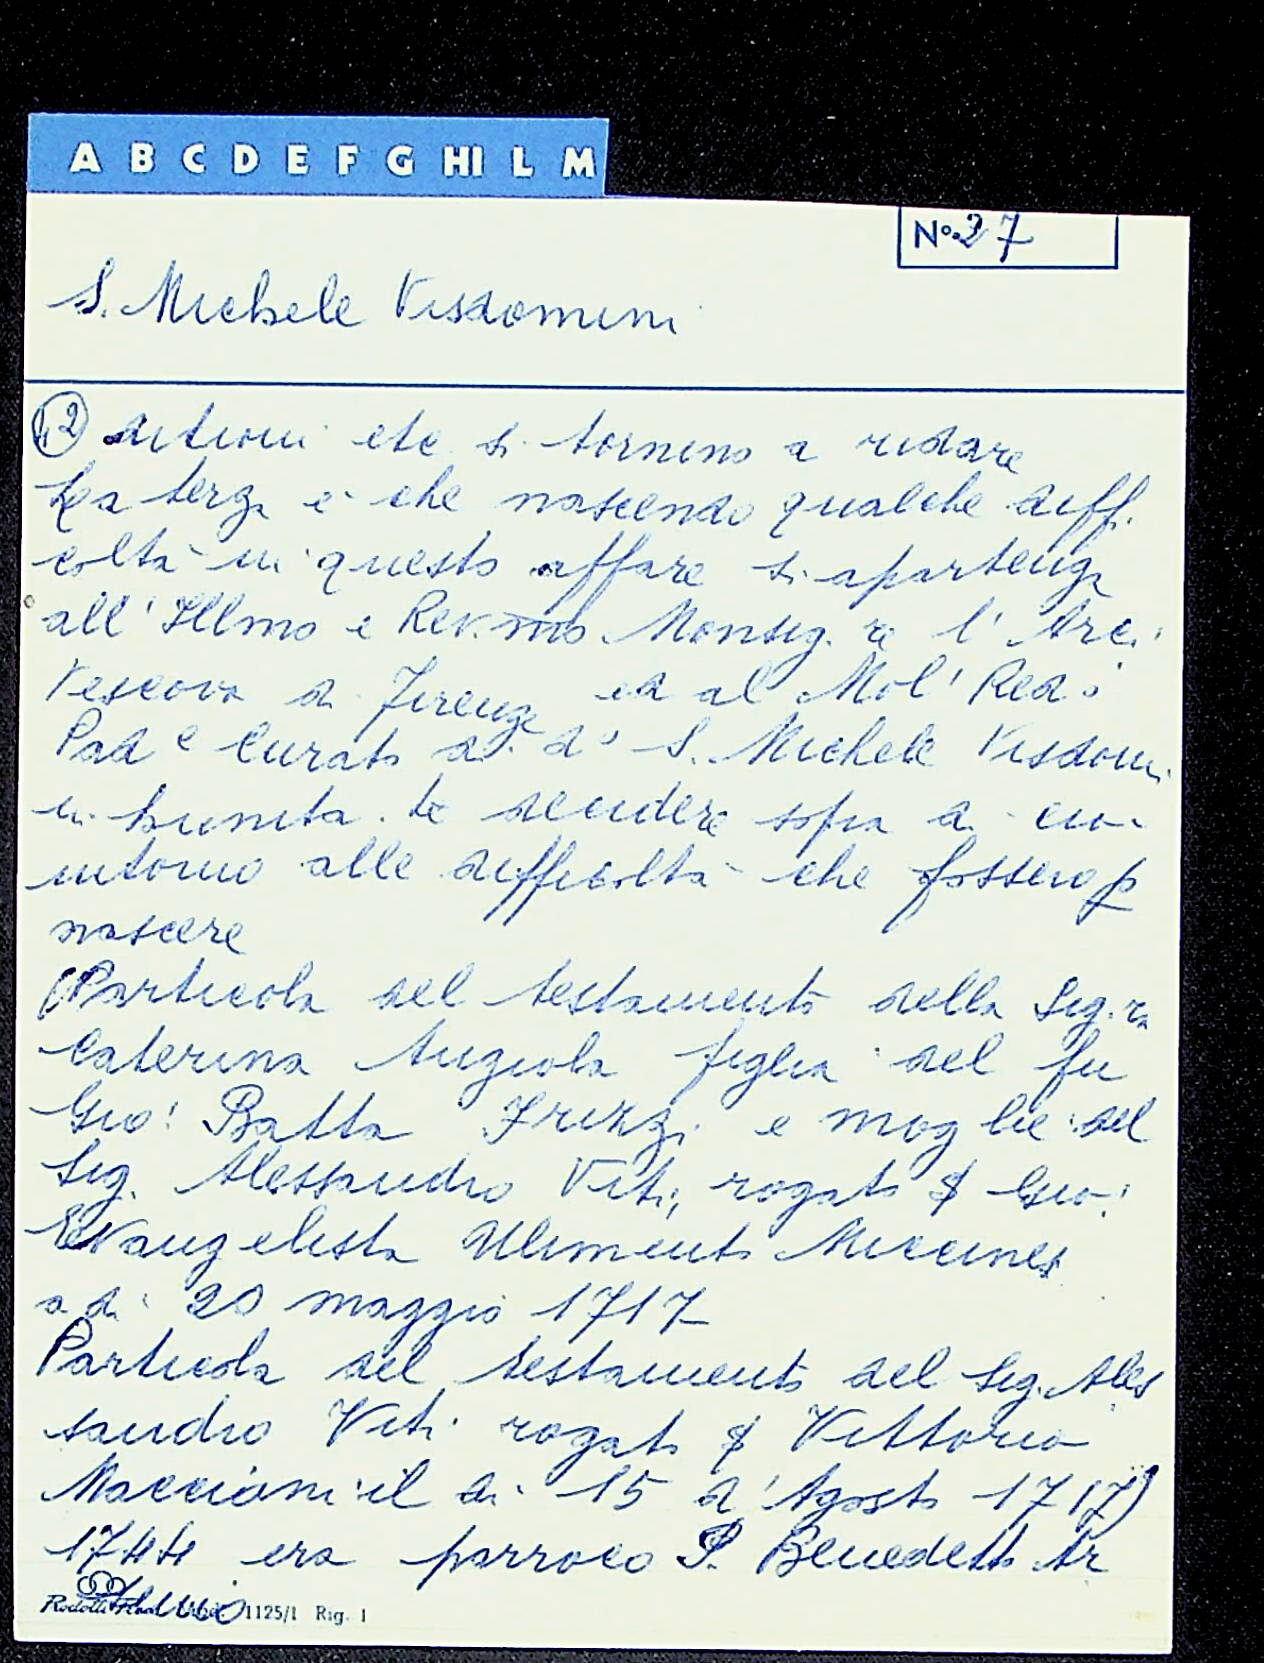 A B C D E F G HI L M
No. 27
S. Michele Visdomini
2 etc si tornino a ridare
La terza e che nascendo qualche diffi
coltà in questo affare si apartenga
all' Illmo e Rev.mo Monsig.re l' Arci
Vescovo di Firenze ed al Mol' Red.o
Pad e Curato di d.o S. Michele Visdomi
ni decidere sopra di ciò
intorno alle difficoltà che fossero p
nascere
(Particola del testamento della Sig.ra
Caterina Angiola figlia del fu
Gio: Batta Frizzi e moglie del
Sig. Alessandro Viti, rogato Gio:
Evangelista Miccines
a di 20 maggio 1717
Particola del testamento del Sig. Ales
sandro Viti rogato Vittorio
Maccioni il di 15 d'Agosto 1717)
1744 era parroco P. Benedetto Ar
1125/1 Rig. 1